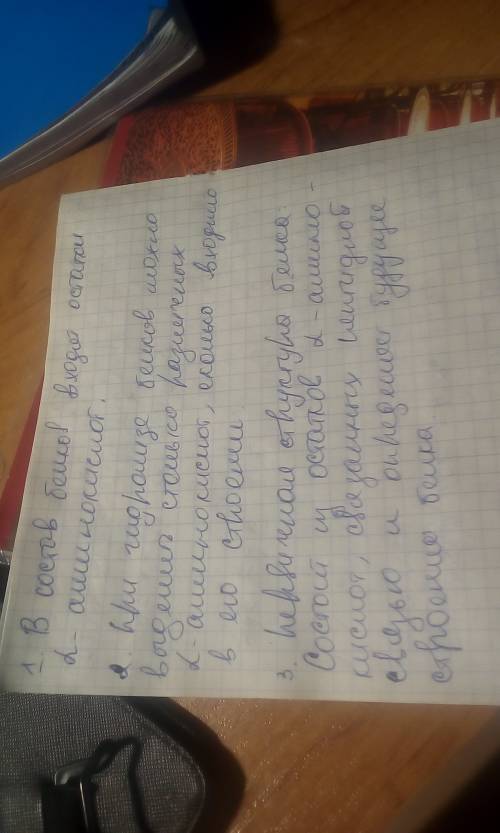 1. В состав белков входят остатки
α-аминокислот.
2. При гидролизе белков можно
выделить столько различных
α-аминокислот, сколько входило
в его строении.
3. Первичная структура белка:
Состоит из остатков α-амино-
кислот, связанных пептидной
связью и определяет будущее
строение белка.